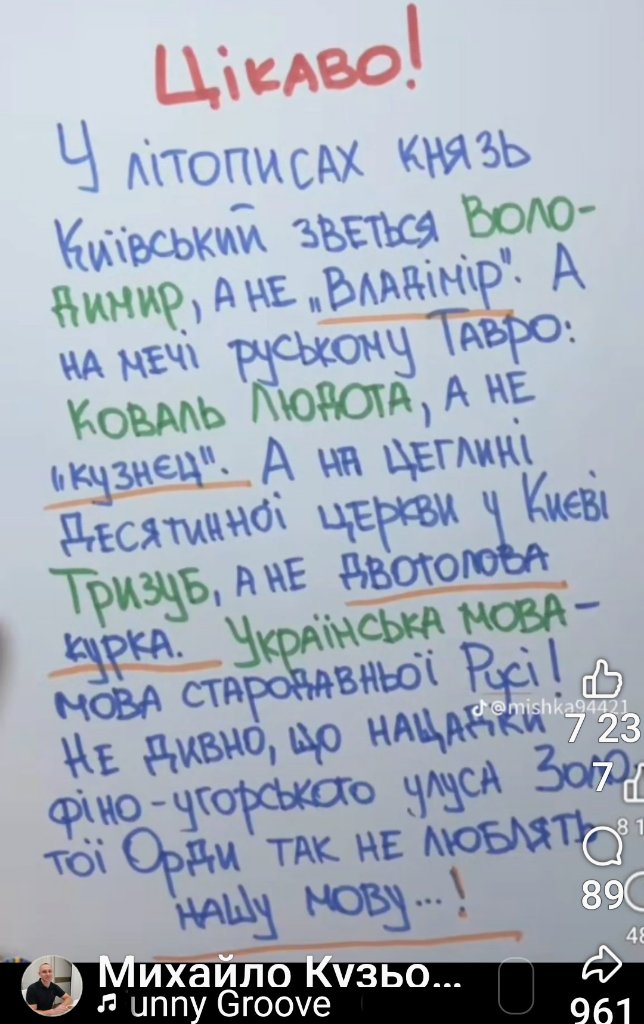 Цікаво!
У літописах князь
Київський зветься Воло-
димир, а не „Владімір". А
на мечі руському Тавро:
Коваль Людота, а не
"кузнєц". А на цеглині
Десятинної церкви у Києві
Тризуб, а не двоголова
курка. Українська мова -
мова стародавньої Русі!
@mishka94421
Не дивно, що нащадки
7 23
7
фіно-угорського улуса Золо
81
тої Орди так не люблять
89
нашу мову...!
48
Михайло Кузьо...
unny Groove
961